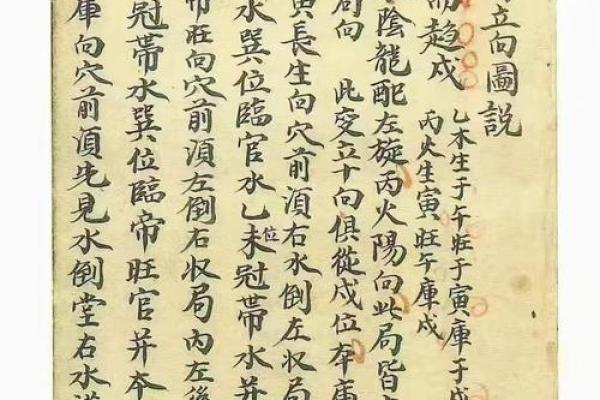 立向圖說
趨戌
乙木生于午旺于寅庫于戌
丙火生寅旺午庫戌
陰龍配左旋丙火陽向此局皆
向 此立十向俱從戌位夲庫
寅長生向穴前湏右水倒左収局
水巽位臨官水乙未位冠帶水并
旺向穴前湏左倒右収局內左後
冠帶水巽位臨帝旺官并夲
庫向穴前湏先見水倒堂右水